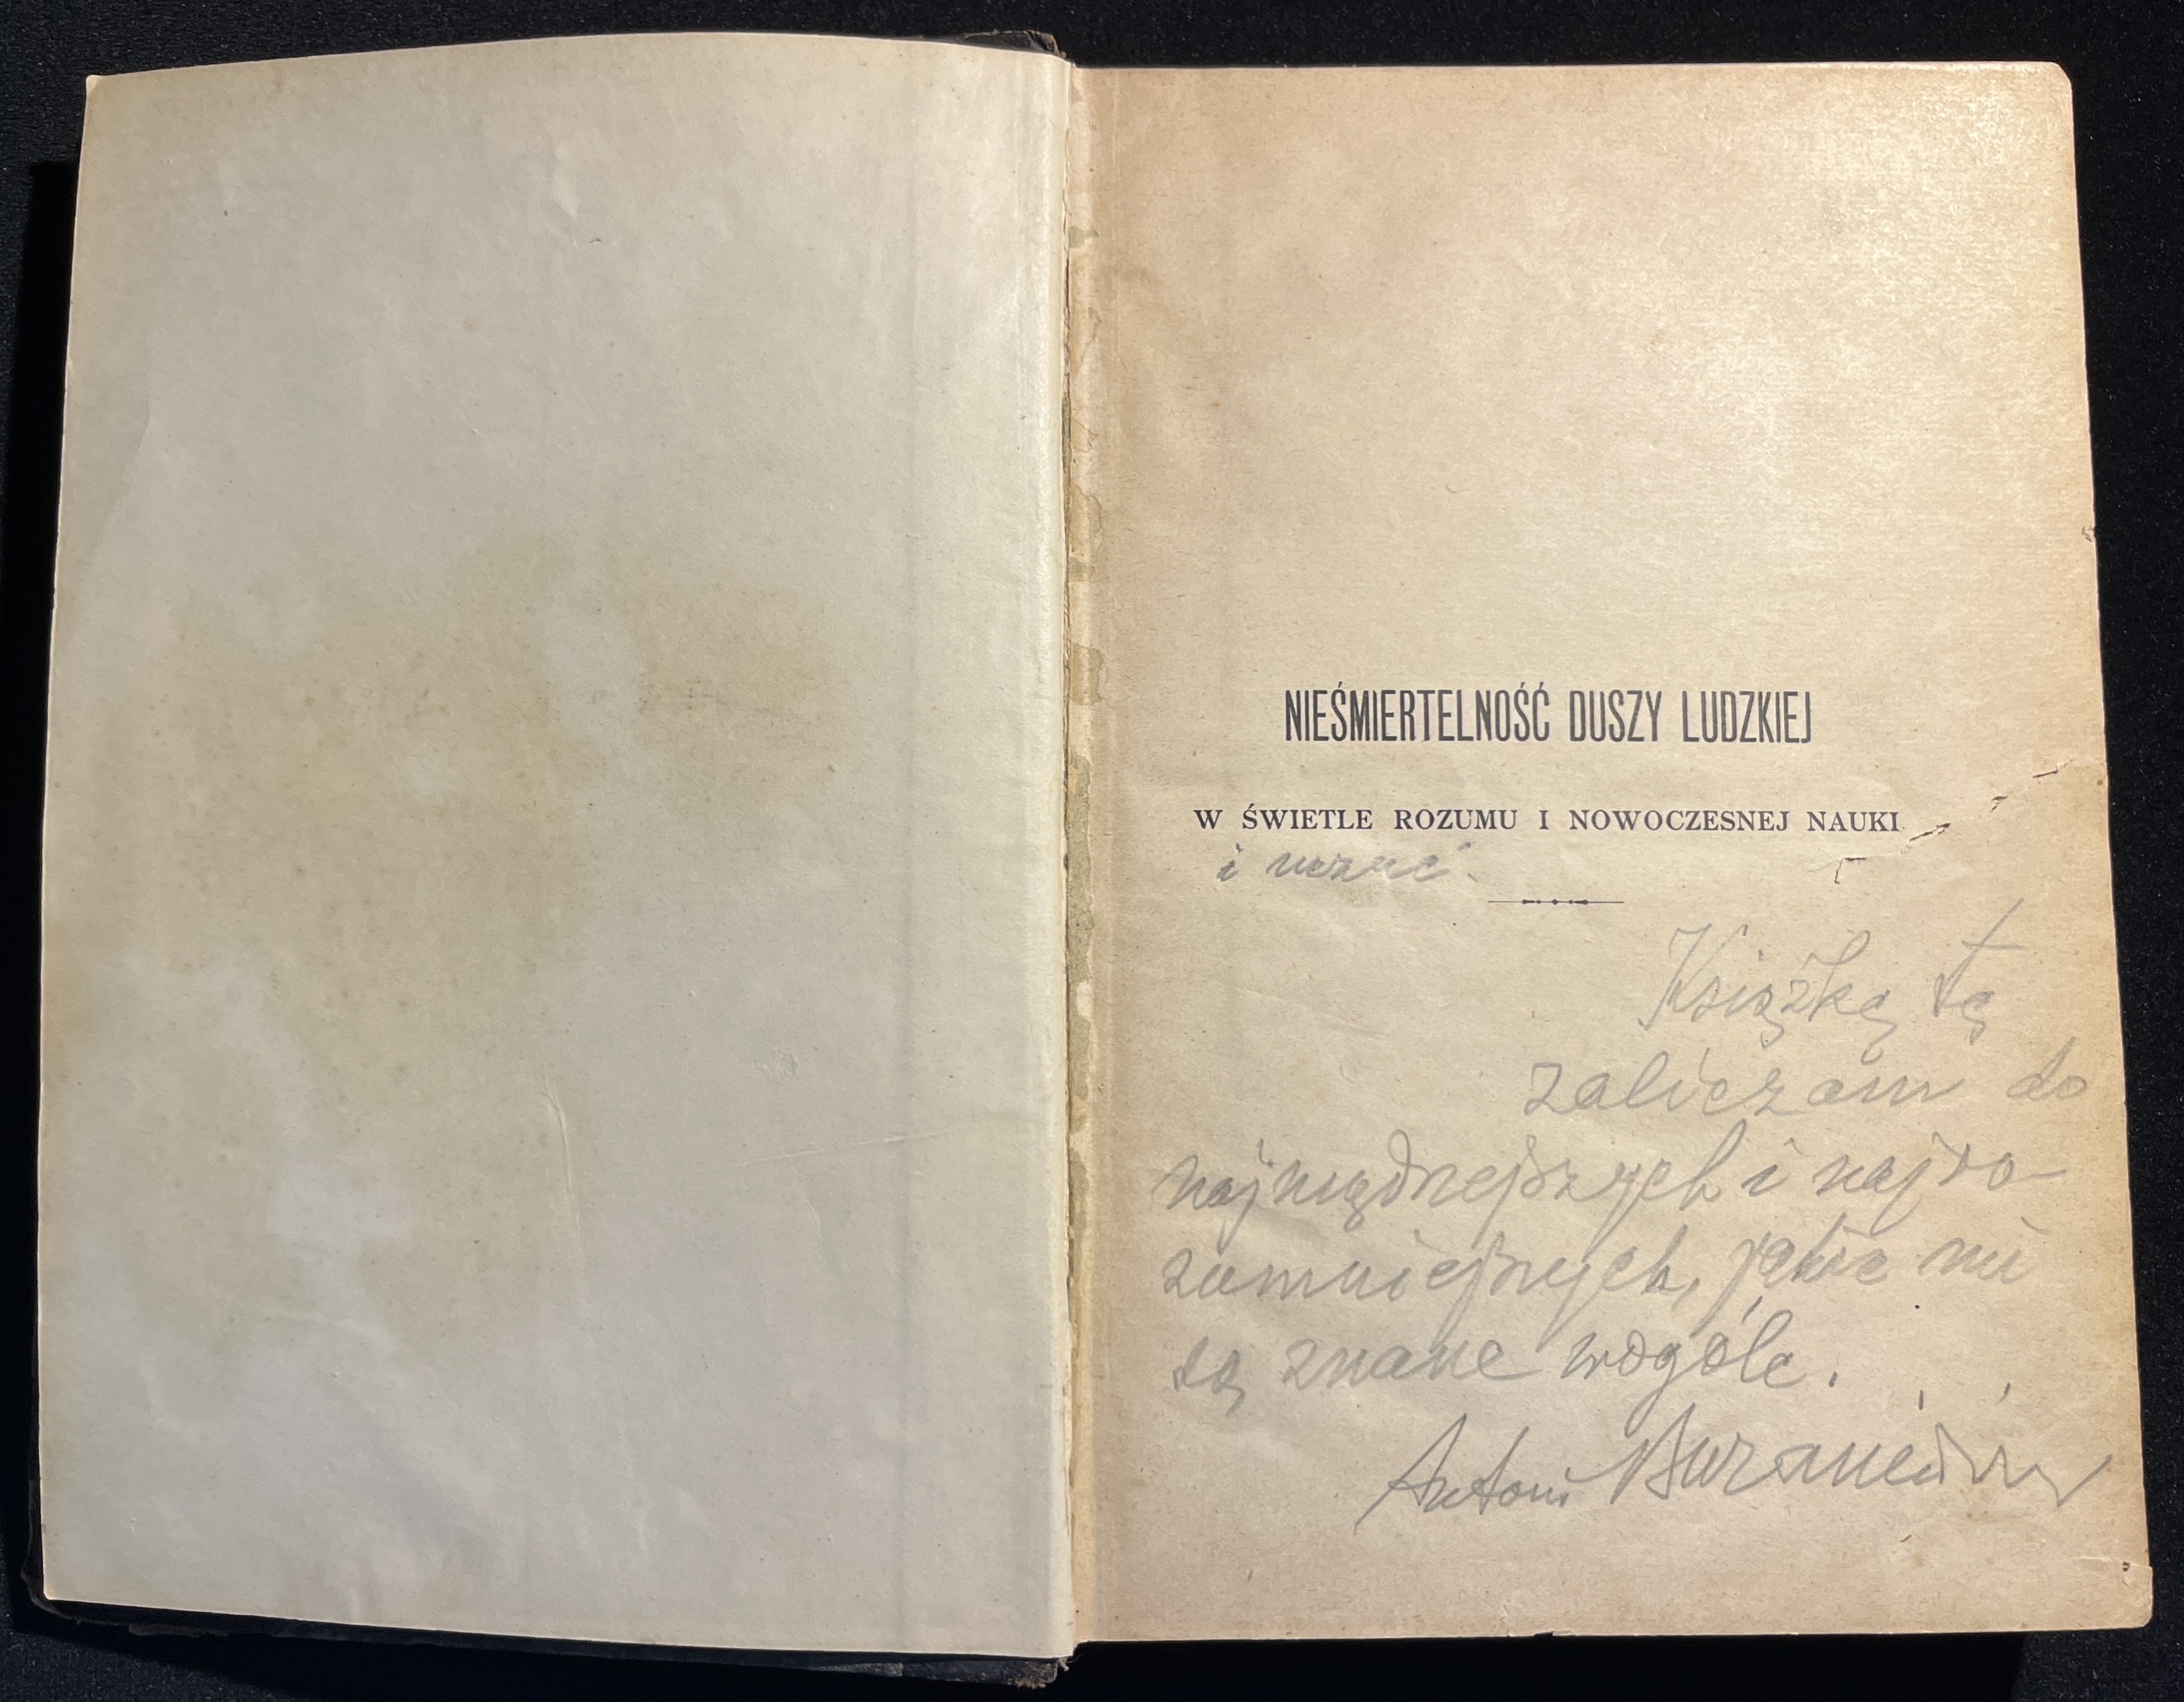 NIEŚMIERTELNOŚĆ DUSZY LUDZKIEJ
W ŚWIETLE ROZUMU I NOWOCZESNEJ NAUKI
i uczuć.
Książkę tę
zaliczam do
najmądrzejszych i najro-
zumniejszych, jakie mi
są znane wogóle.
Antoni